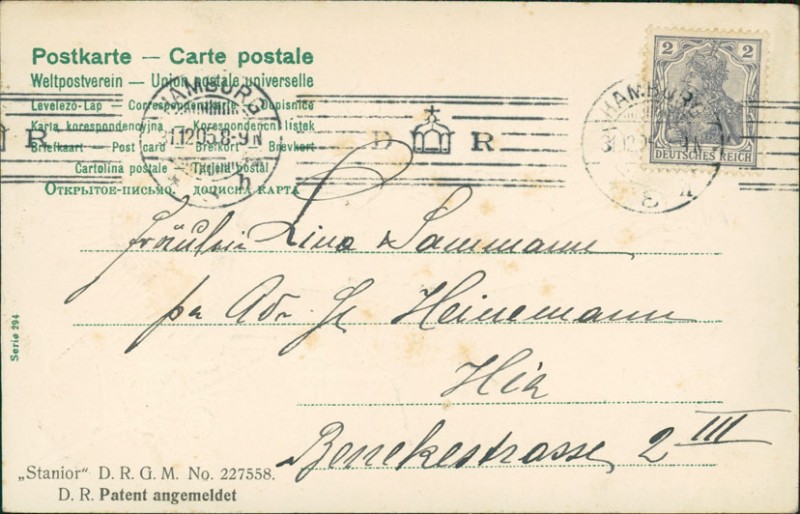 Postkarte — Carte postale
Weltpostverein — Union postale universelle
Levelező-Lap — Correspondenzkarte — Dopisnice
Karta korespondencyjna — Korespondenční lístek
Briefkaart — Post card — Brefkort — Brevkort
Cartolina postale — Tarjeta postal
Открытое письмо. — дописна карта
HAMBURG
8-9N
D R
R
2 2
DEUTSCHES REICH
HAMBURG
9N
Fräulein Lina Sammann
pr Adr. Hr Heinemann
Hier
Benekestrasse 2 III
Serie 294
„Stanior" D. R. G. M. No. 227558.
D. R. Patent angemeldet